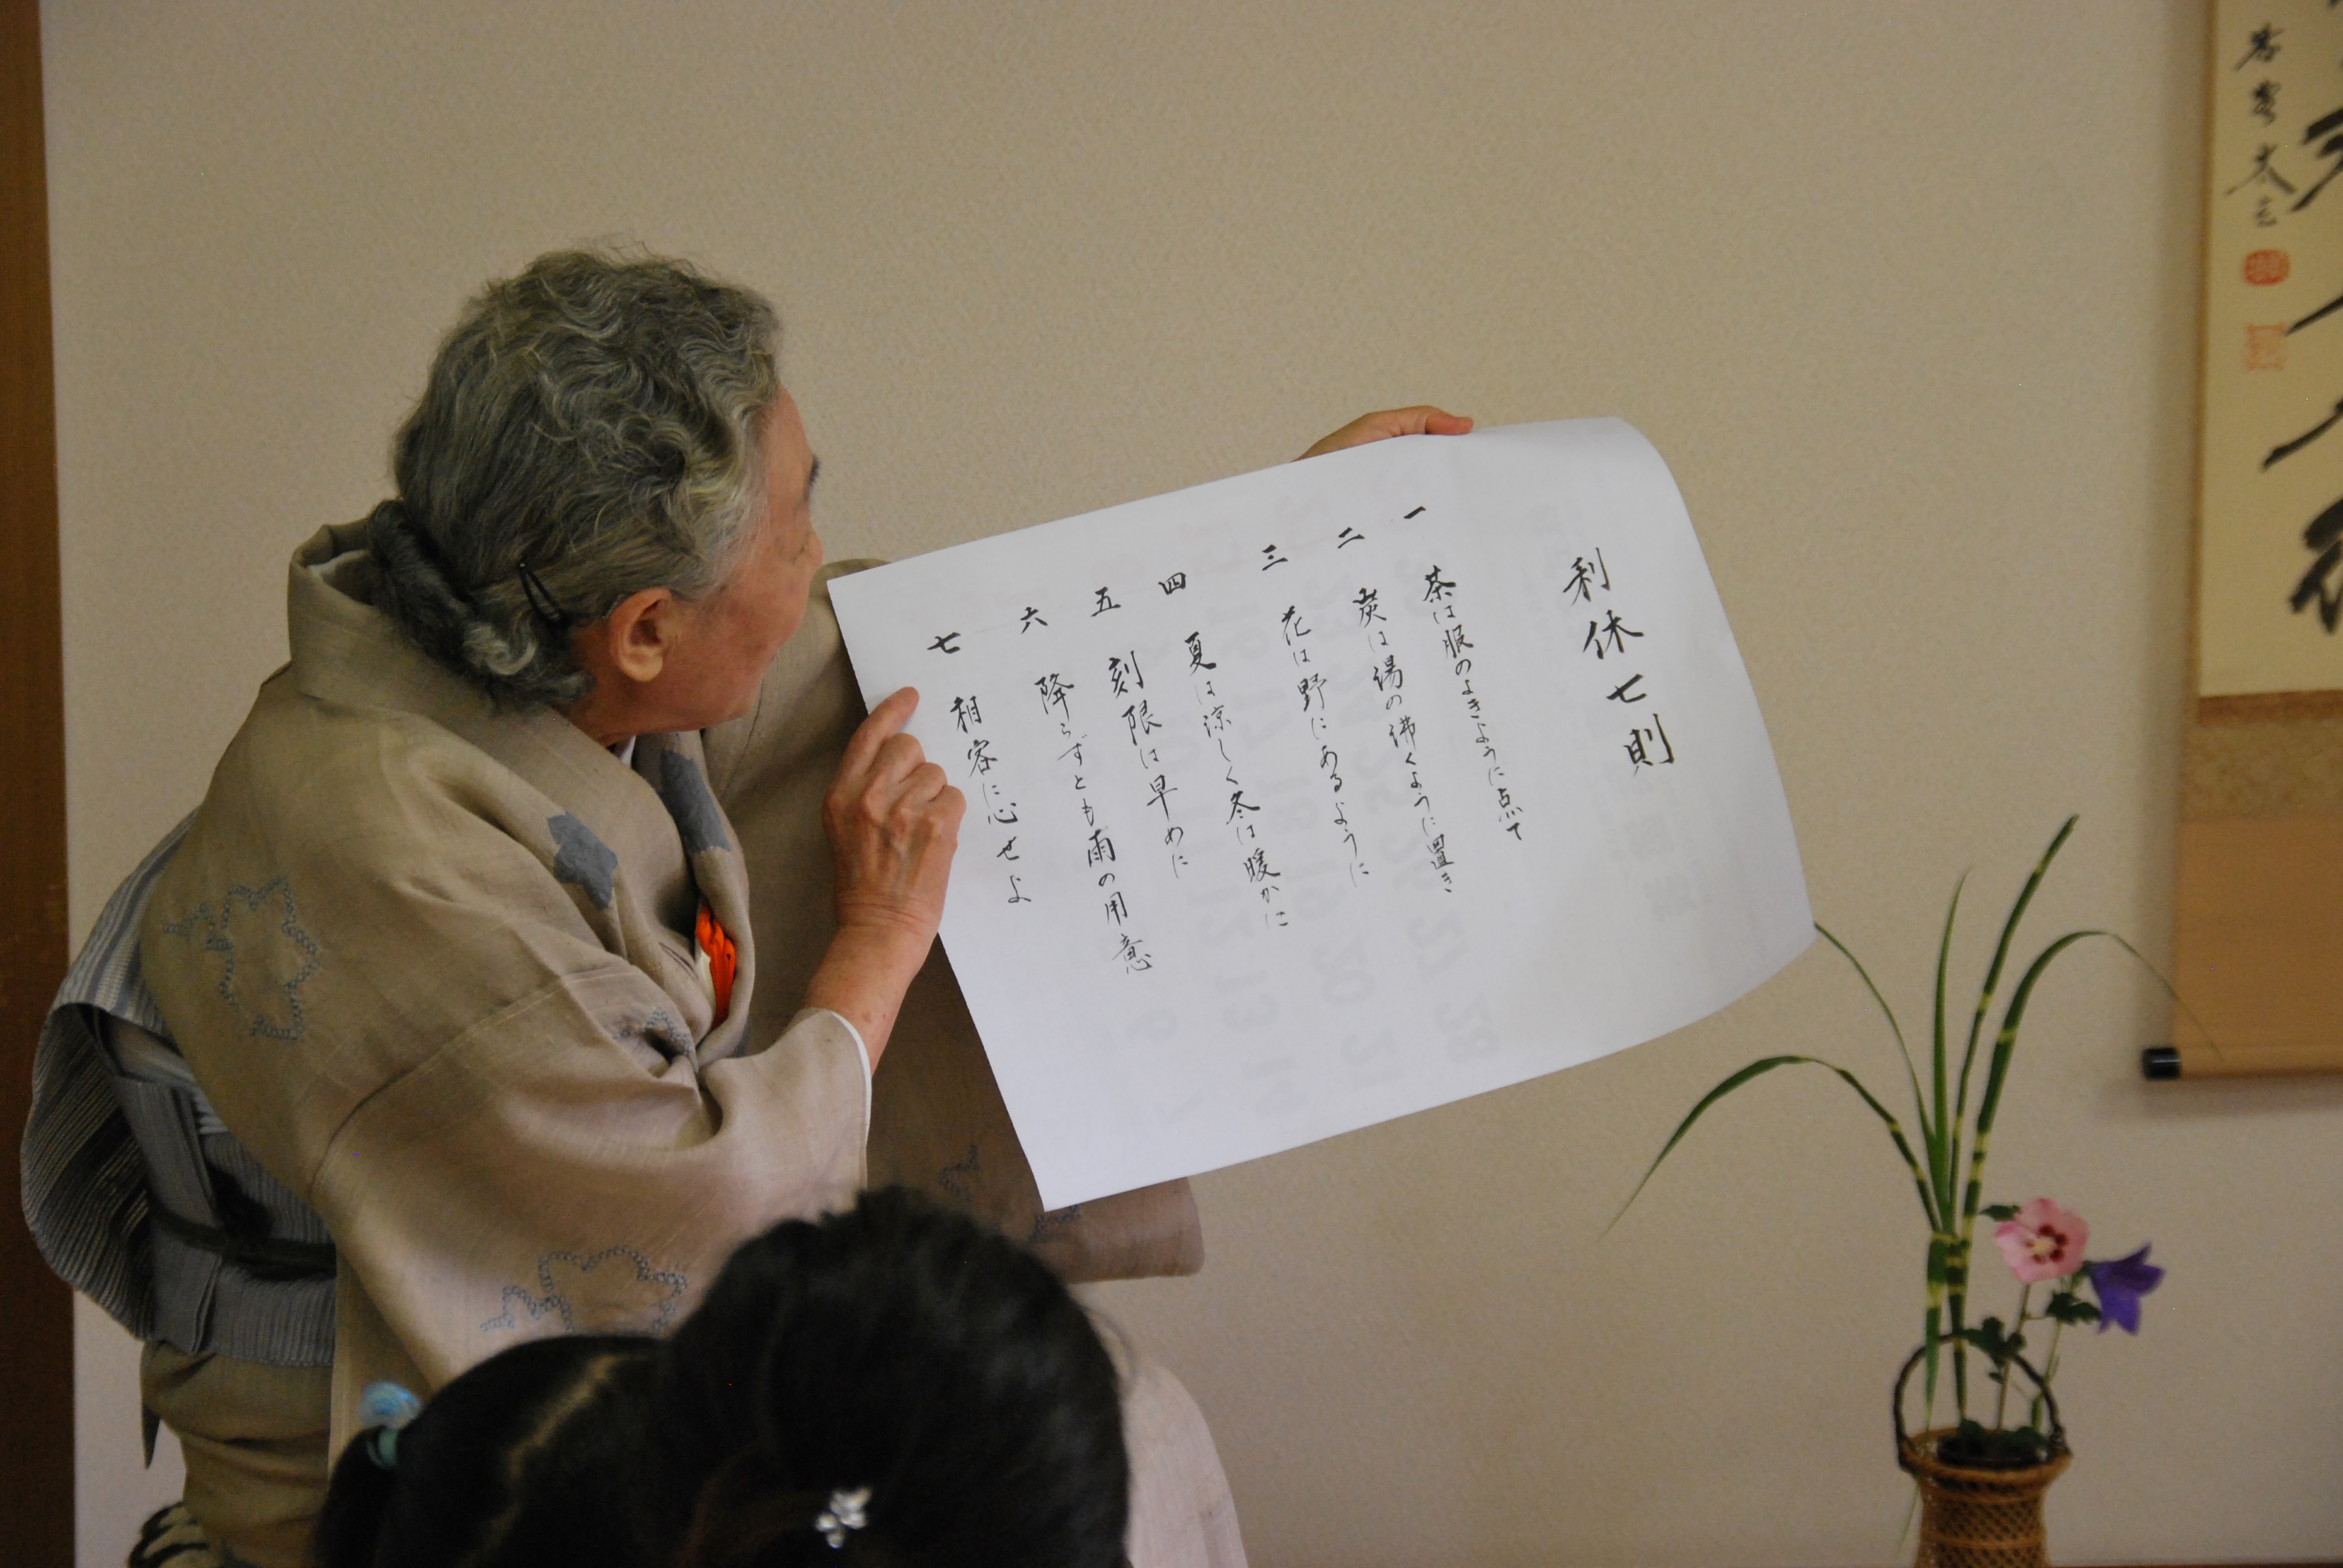 利休七則
一 茶は服のよきように点て
二 炭は湯の沸くように置き
三 花は野にあるように
四 夏は涼しく冬は暖かに
五 刻限は早めに
六 降らずとも雨の用意
七 相客に心せよ